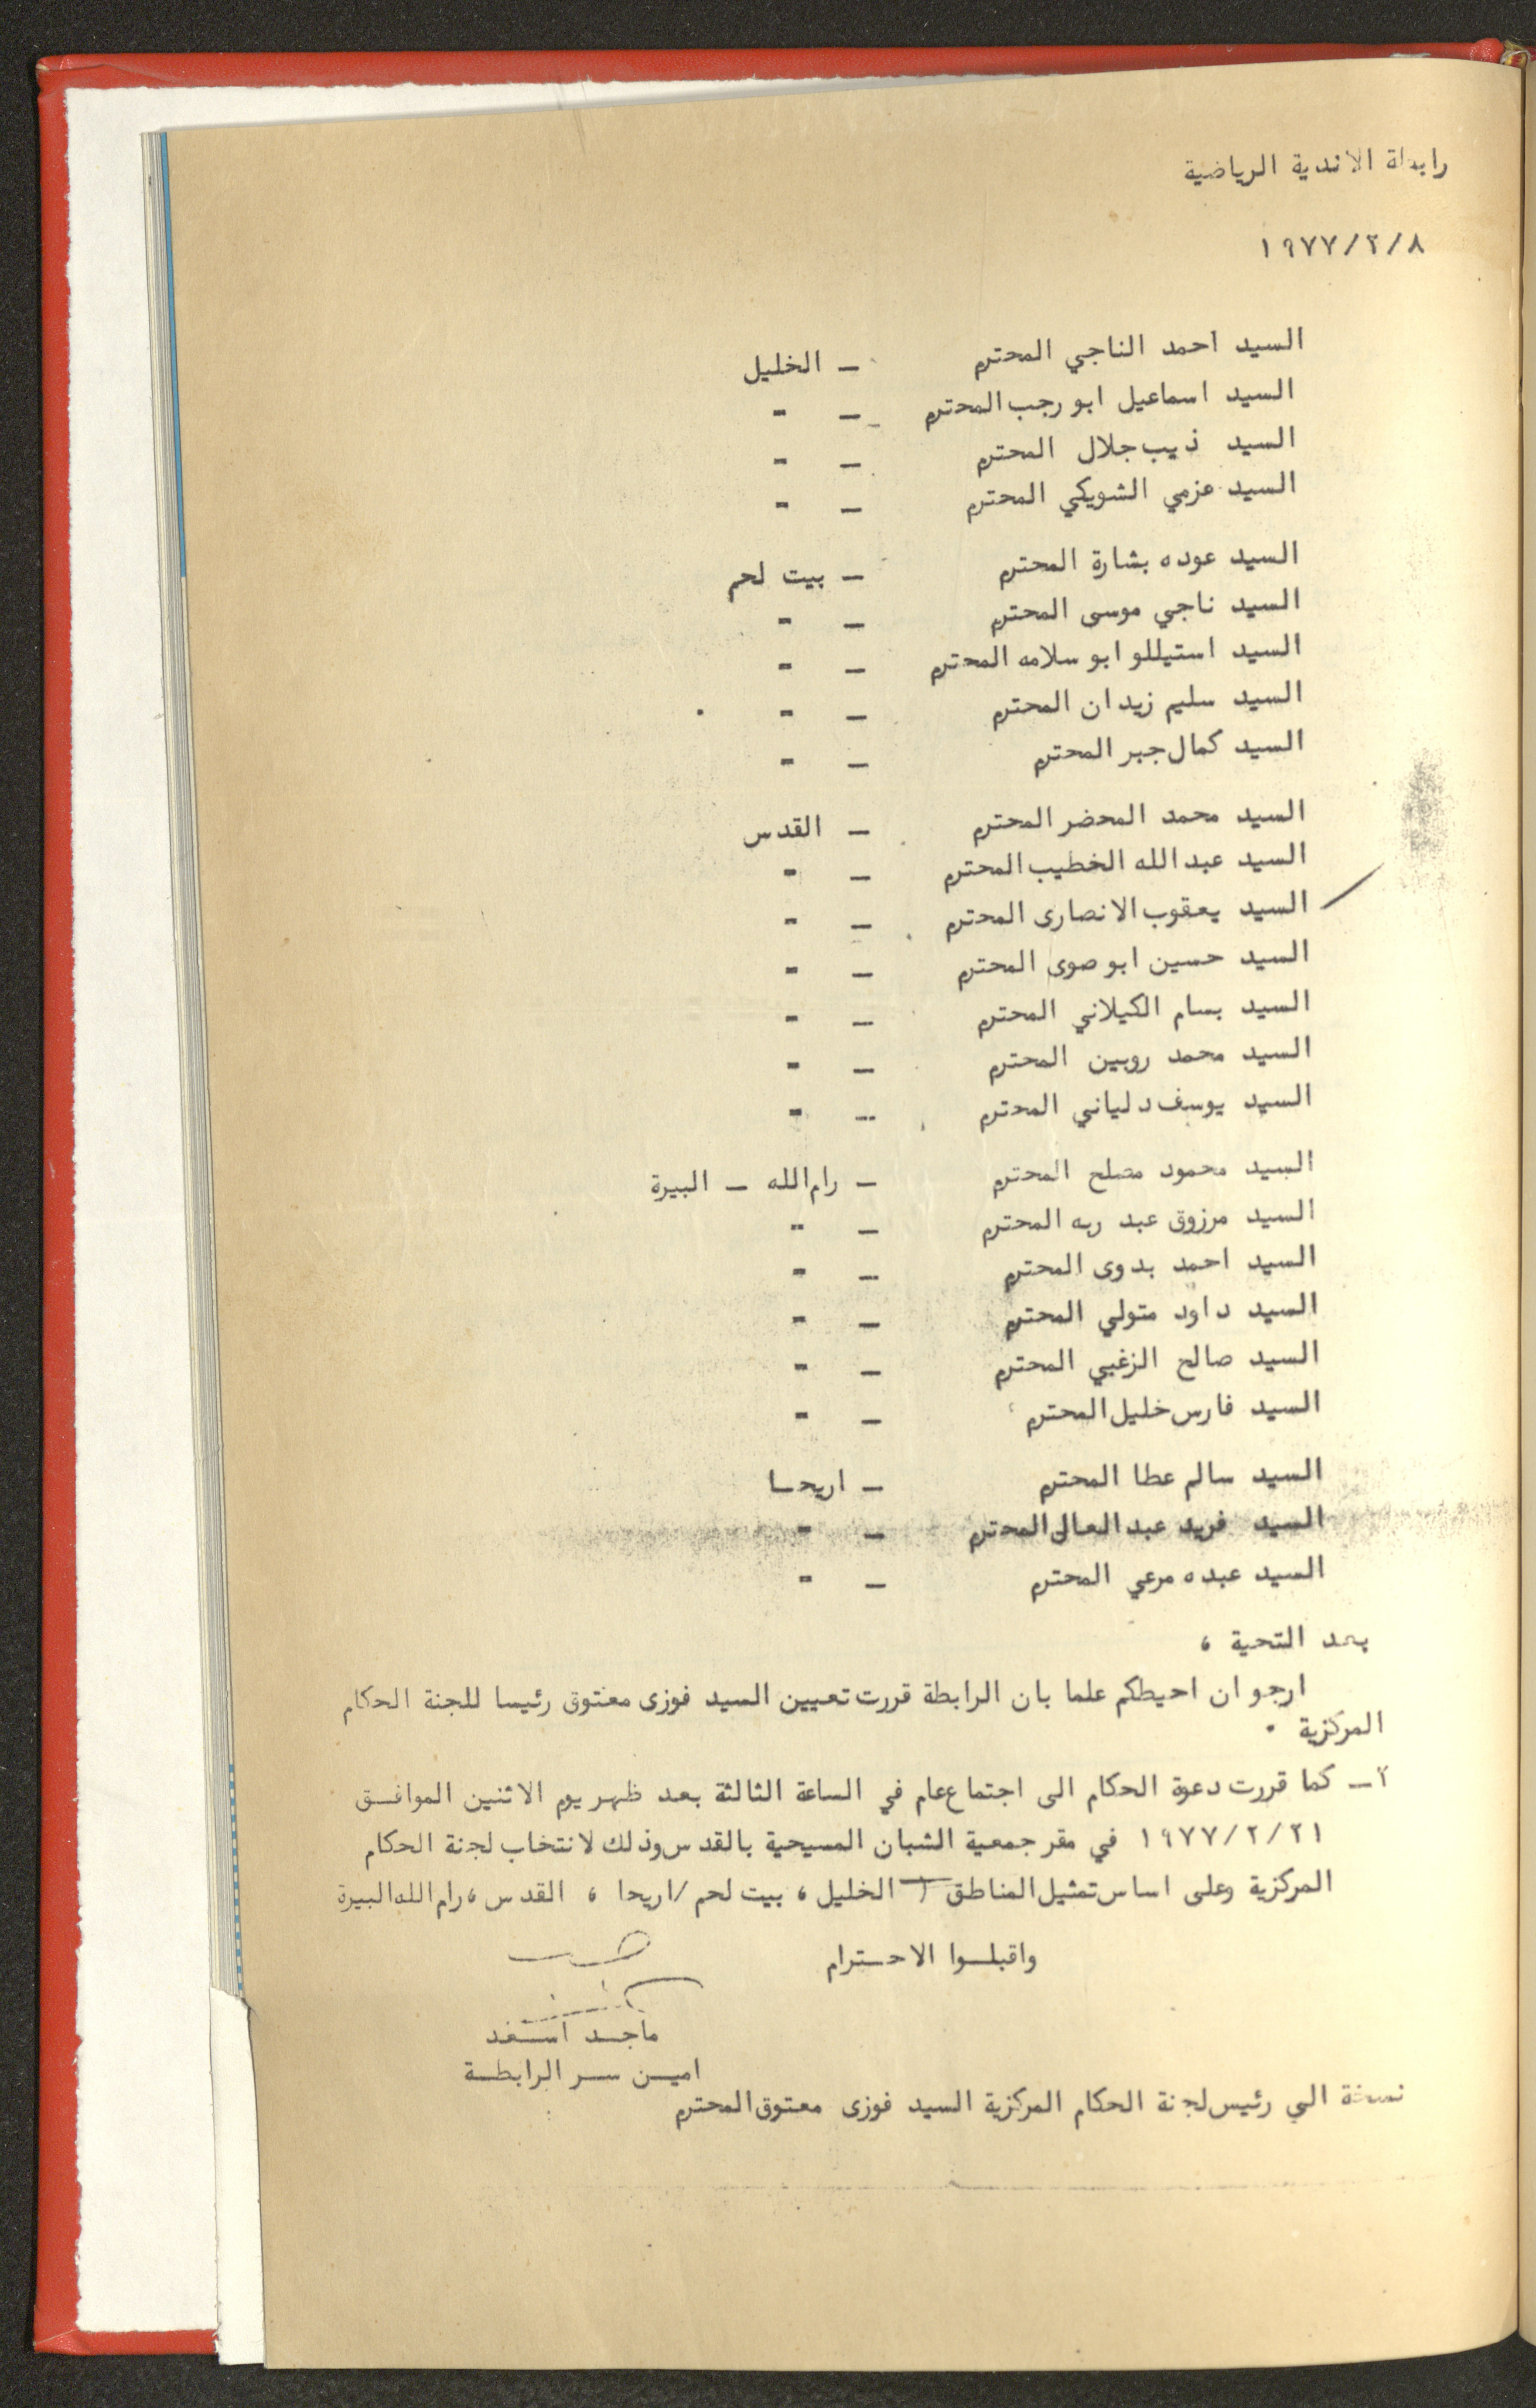 رابطة الاندية الرياضية
١٩٧٧/٢/٨
السيد احمد الناجي المحترم – الخليل
السيد اسماعيل ابو رجب المحترم – "
السيد ذيب جلال المحترم – "
السيد عزمي الشويكي المحترم – "
السيد عوده بشارة المحترم – بيت لحم
السيد ناجي موسى المحترم – "
السيد استيللو ابو سلامه المحترم – "
السيد سليم زيدان المحترم – "
السيد كمال جبر المحترم – "
السيد محمد المحضر المحترم – القدس
السيد عبد الله الخطيب المحترم – "
السيد يعقوب الانصارى المحترم – "
السيد حسين ابو صوى المحترم – "
السيد بسام الكيلاني المحترم – "
السيد محمد روبين المحترم – "
السيد يوسف دلياني المحترم – "
السيد محمود مصلح المحترم – رام الله – البيرة
السيد مرزوق عبد ربه المحترم – "
السيد احمد بدوى المحترم – "
السيد داود متولي المحترم – "
السيد صالح الزغبي المحترم – "
السيد فارس خليل المحترم – "
السيد سالم عطا المحترم – اريحا
السيد فريد عبد العال المحترم – "
السيد عبده مرعي المحترم – "
بعد التحية ،
ارجو ان احيطكم علما بان الرابطة قررت تعيين السيد فوزى معتوق رئيسا للجنة الحكام
المركزية .
٢– كما قررت دعوة الحكام الى اجتماع عام في الساعة الثالثة بعد ظهر يوم الاثنين الموافق
١٩٧٧/٢/٢١ في مقر جمعية الشبان المسيحية بالقدس وذلك لانتخاب لجنة الحكام
المركزية وعلى اساس تمثيل المناطق ( الخليل ، بيت لحم /اريحا ، القدس ، رام الله البيرة
واقبلوا الاحترام
ماجد اسعد
امين سر الرابطة
نسخة الى رئيس لجنة الحكام المركزية السيد فوزى معتوق المحترم